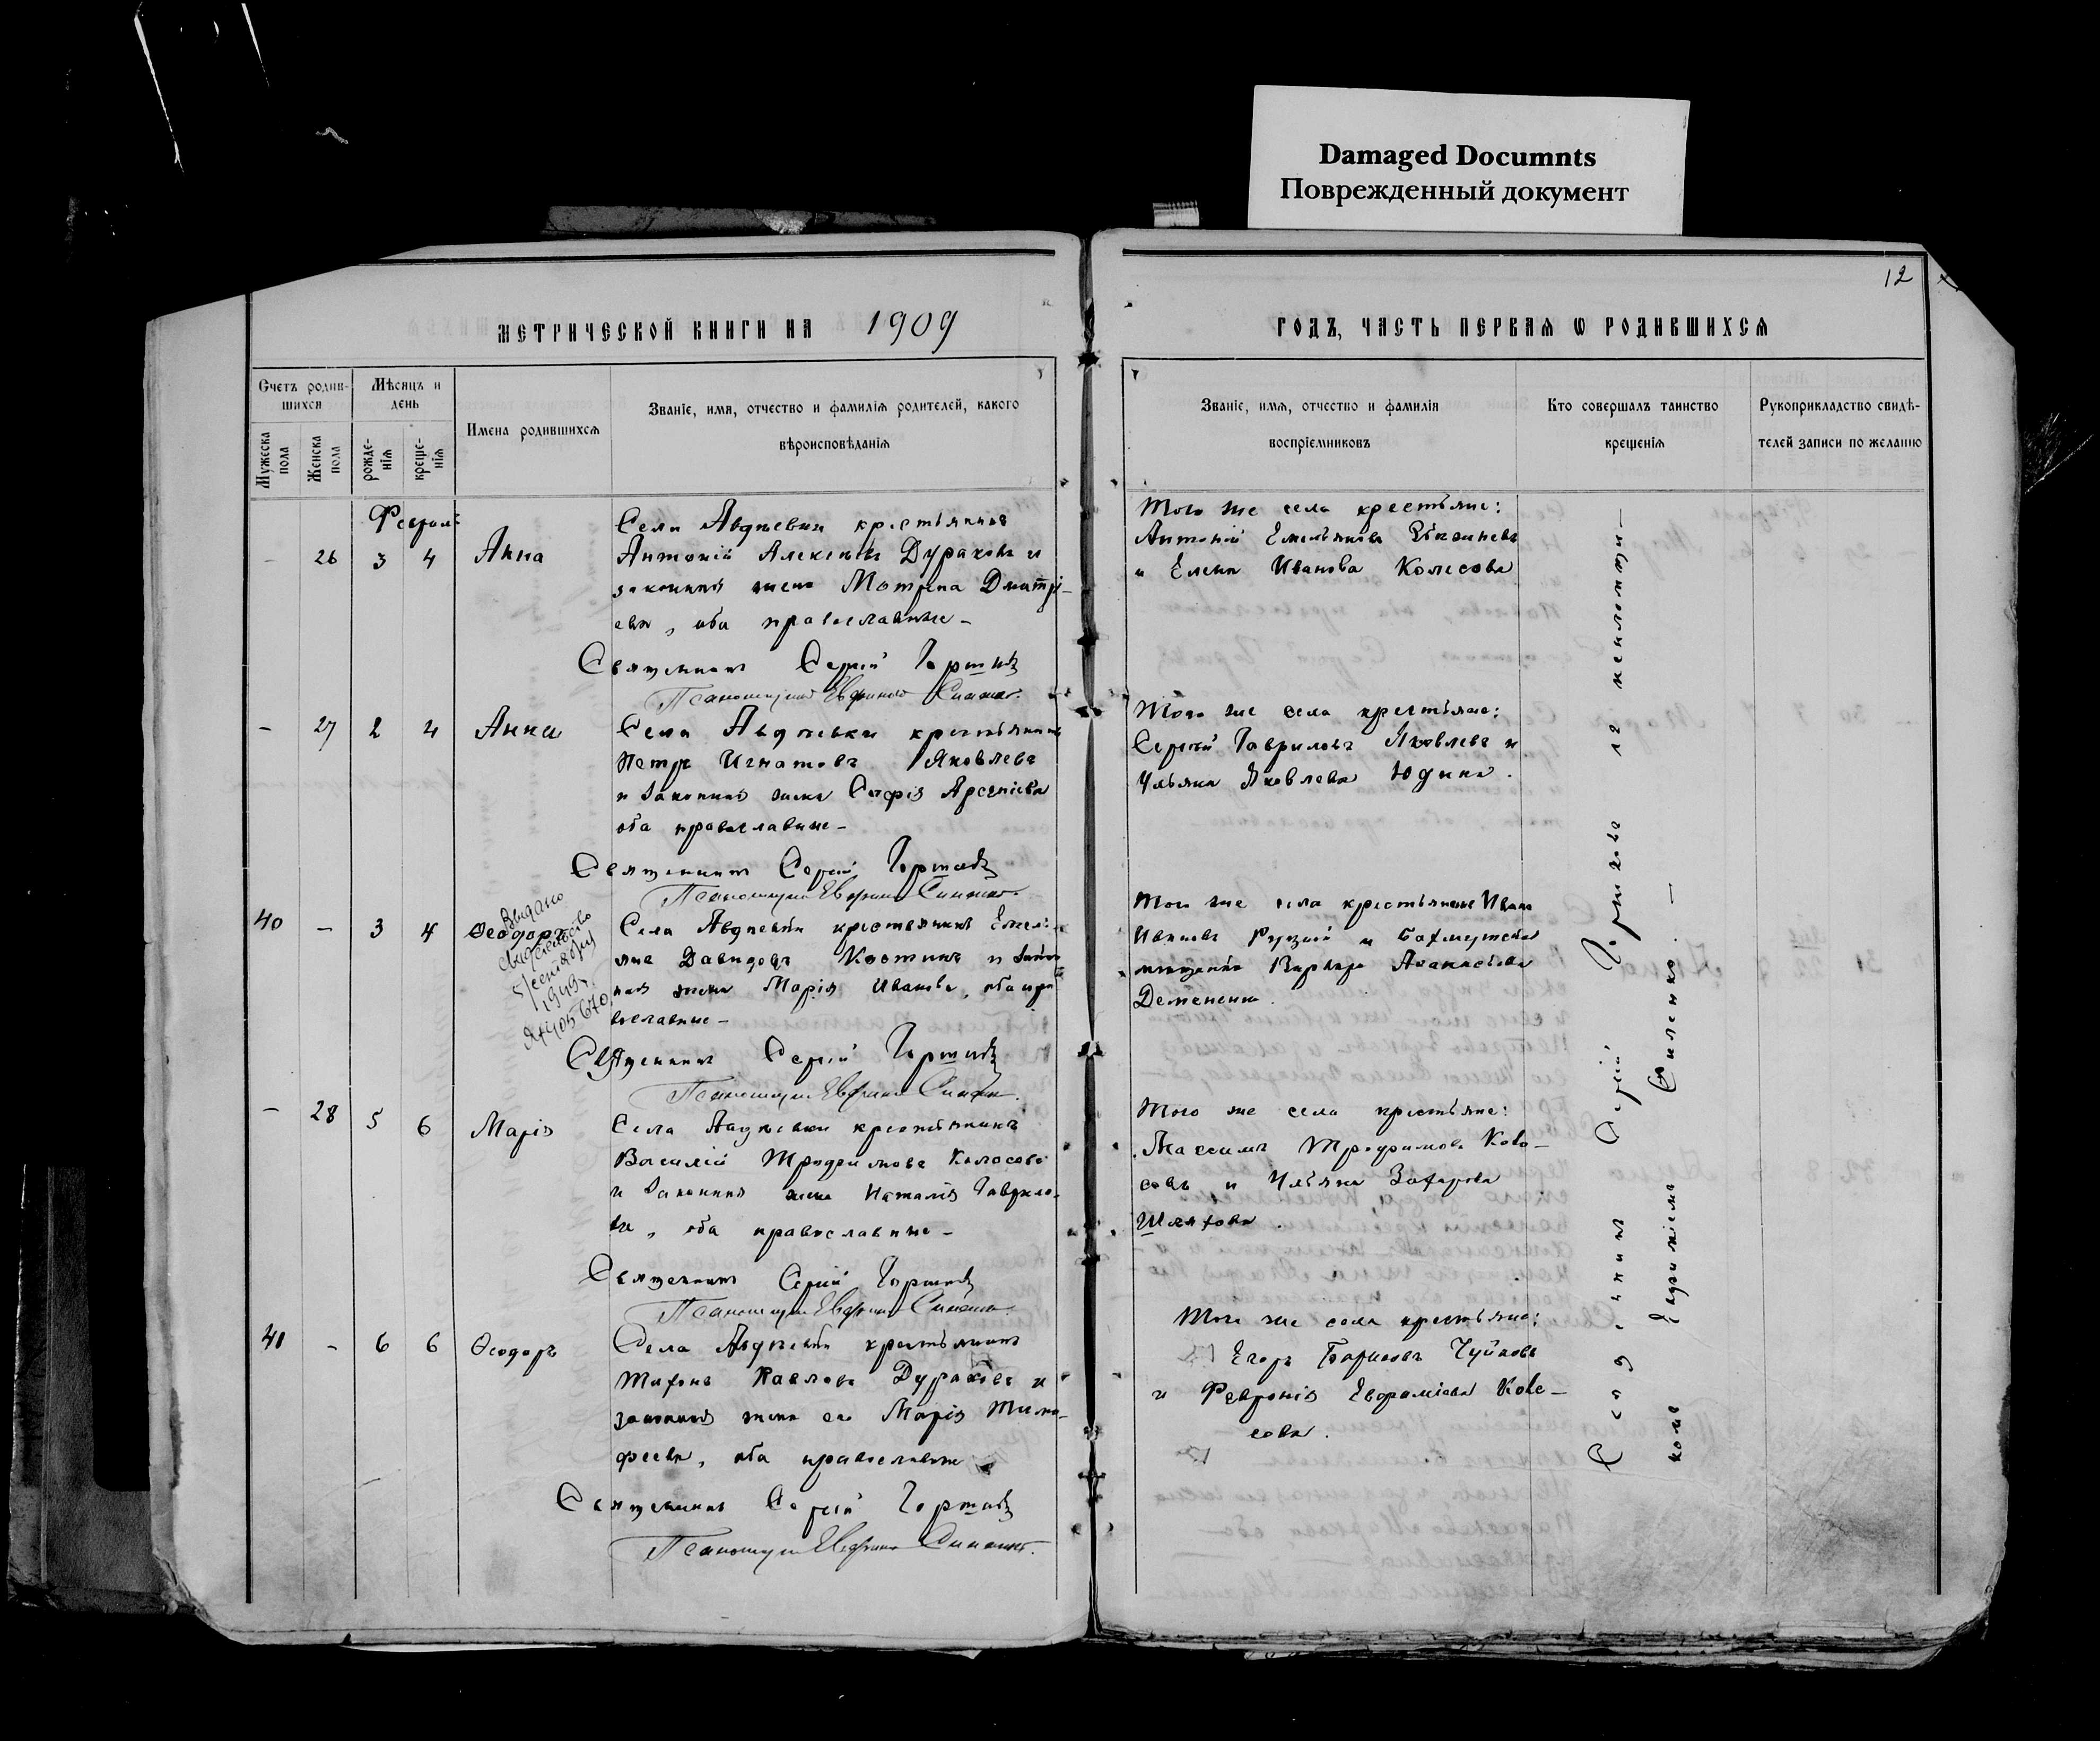 Damaged Documnts
Поврежденный документ
12
МЕТРИЧЕСКОЙ КНИГИ НА 1909
ГОДЪ, ЧАСТЬ ПЕРВАЯ Ѡ РОДИВШИХСЯ
Счетъ родив-
шихся
Мужеска
пола
Женска
пола
Мѣсяцъ и
день
рожде-
нія
креще-
нія
Имена родившихся
Званіе, имя, отчество и фамилія родителей, какого
вѣроисповѣданія
Званіе, имя, отчество и фамилія
воспріемниковъ
Кто совершалъ таинство
крещенія
Рукоприкладство свидѣ-
телей записи по желанію
Февраль
- 26 3 4 Анна
Села Авдѣевки крестьянинъ
Антоній Алексѣевъ Дураковъ и
законная жена Мотрона Дмитрі-
ева, оба православные -
Священникъ Сергій
Псаломщикъ
Того же села крестьяне:
Антоній Емельяновъ
и Елена Иванова Колесова
- 27 2 4 Анна
Села Авдѣевки крестьянинъ
Петръ Игнатовъ Яковлевъ
и законная жена Софія Арсеніева
оба православные -
Священникъ Сергій
Псаломщикъ
Того же села крестьяне:
Сергій Гавриловъ Яковлевъ и
Ульяна Яковлева Юдина.
40 - 3 4 Ѳеодоръ
Выдано
свидетельство
5/сентября
1949г.
Села Авдѣевки крестьянинъ Емель-
янъ Давидовъ Костинъ и закон
ная жена Марія Иванова, оба пра
вославные -
Священникъ Сергій
Псаломщикъ
Того же села крестьянинъ Иванъ
Ивановъ и Бахмутская
мѣщанка Варвара Аѳанасьева
Деменкина.
- 28 5 6 Марія
Села Авдѣевки крестьянинъ
Василій Трофимовъ Колосовъ
и законная жена Наталія Гаврило-
ва, оба православные -
Священникъ Сергій
Псаломщикъ
Того же села крестьяне:
Максимъ Трофимовъ Коло-
совъ и Ульяна Захарова
Шляхова.
41 - 6 6 Ѳеодоръ
Села Авдѣевки крестьянинъ
Тихонъ Павловъ Дураковъ и
законная жена его Марія Тимо-
феева, оба православные
Священникъ Сергій
Псаломщикъ
Того же села крестьяне:
Егоръ Борисовъ Чуйковъ
и Февронія Евфиміева Коле-
сова.
Священникъ Сергій